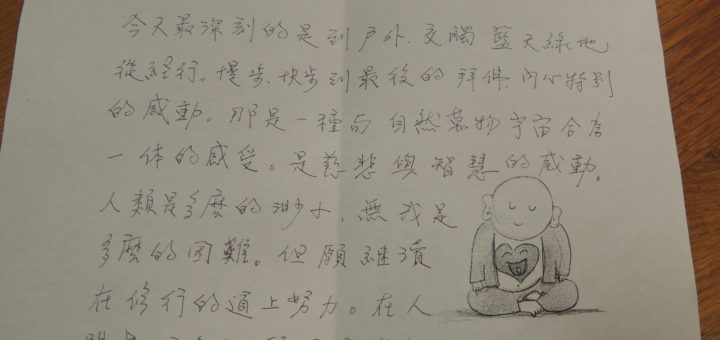 今天最深刻的是到戶外,交觸藍天綠地,
從經行,慢步,快步到最後的拜佛,內心特別
的感動。那是一種與自然萬物宇宙合為
一体的感受。是慈悲與智慧的感動。
人類是多麼的渺小,無我是
多麼的困難。但願繼續
在修行的道上努力。在人